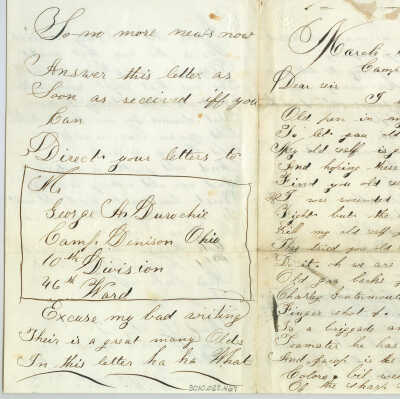 So no more news now
Answer this letter as
Soon as received iff you
Can
Direct your letters to
Mr
George A Durochie
Camp Denison Ohio
10th Division
46th Ward
Excuse my bad writing
Their is a great many Olds
In this letter ha ha What
March
Camp
Dear sir
I
Old pen in
To let you old
My old self is
And hoping these
Find you old
I was wounded
Fight but the
my old self
old
we are
Old
Charley
Finger shot
Is a brigade
Teamster he has
And is the
Of the sharp